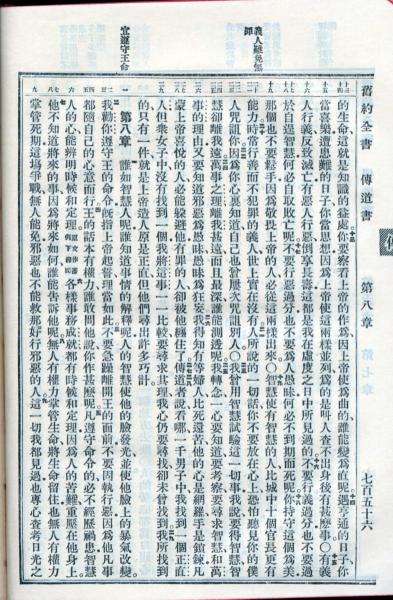 舊約全書 傳道書 第八章 七百五十六
義人難免無罪
宜遵守王命
的生命這就是知識的益處你要察看上帝的作為因上帝使為曲的誰能變為直呢遇亨通的日子你
當喜樂遭患難的日子你當思想因為上帝使這兩樣並列為的是叫人查不出身後有甚麼事○有義
人行義反致滅亡有惡人行惡倒享長壽這都是我在虛度之日中所見過的不要行義過分也不要過
於自逞智慧何必自取敗亡呢不要行惡過分也不要為人愚昧何必不到期而死呢你持守這個為美
那個也不要鬆手因為敬畏上帝的人必從這兩樣出來○智慧使有智慧的人比城中十個官長更有
能力時常行善而不犯罪的義人世上實在沒有人所說的一切話你不要放在心上恐怕聽見你的僕
人咒詛你因為你心裏知道自己也曾屢次咒詛別人○我曾用智慧試驗這一切事我說要得智慧智
慧卻離我遠萬事之理離我甚遠而且最深誰能測透呢我轉念一心要知道要考察要尋求智慧和萬
事的理由又要知道邪惡為愚昧愚昧為狂妄我得知有等婦人比死還苦他的心是網羅手是鎖鍊凡
蒙上帝喜悅的人必能躲避他有罪的人卻被他纏住了傳道者說看哪一千男子中我找到一個正直
人但衆女子中沒有找到一個我將這事一一比較要尋求其理我心仍要尋找卻未曾找到我所找到
的只有一件就是上帝造人原是正直但他們尋出許多巧計
第八章 誰如智慧人呢誰知道事情的解釋呢人的智慧使他的臉發光並使他臉上的暴氣改變
我勸你遵守王的命令既指上帝起誓理當如此不要急躁離開王的面前不要固執行惡因為他凡事
都隨自己的心意而行王的話本有權力誰敢問他說你作甚麼呢凡遵守命令的必不經歷禍患智慧
人的心能辨明時候和定理各樣事務成就都有時候和定理因為人的苦難重壓在他身上
他不知道將來的事因為將來如何誰能告訴他呢無人有權力掌管生命將生命留住也無人有權力
掌管死期這場爭戰無人能免邪惡也不能救那好行邪惡的人這一切我都見過也專心查考日光之